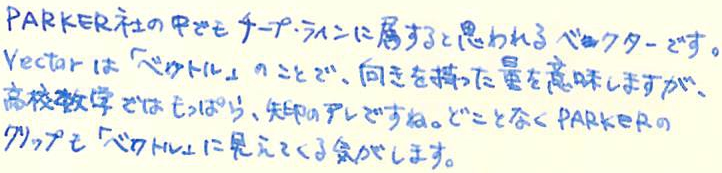 PARKER社の中でもチープ・ラインに属すると思われるベクターです。
Vectorは「ベクトル」のことで、向きを持った量を意味しますが、
高校数学ではもっぱら、矢印のアレですね。どことなくPARKERの
クリップも「ベクトル」に見えてくる気がします。